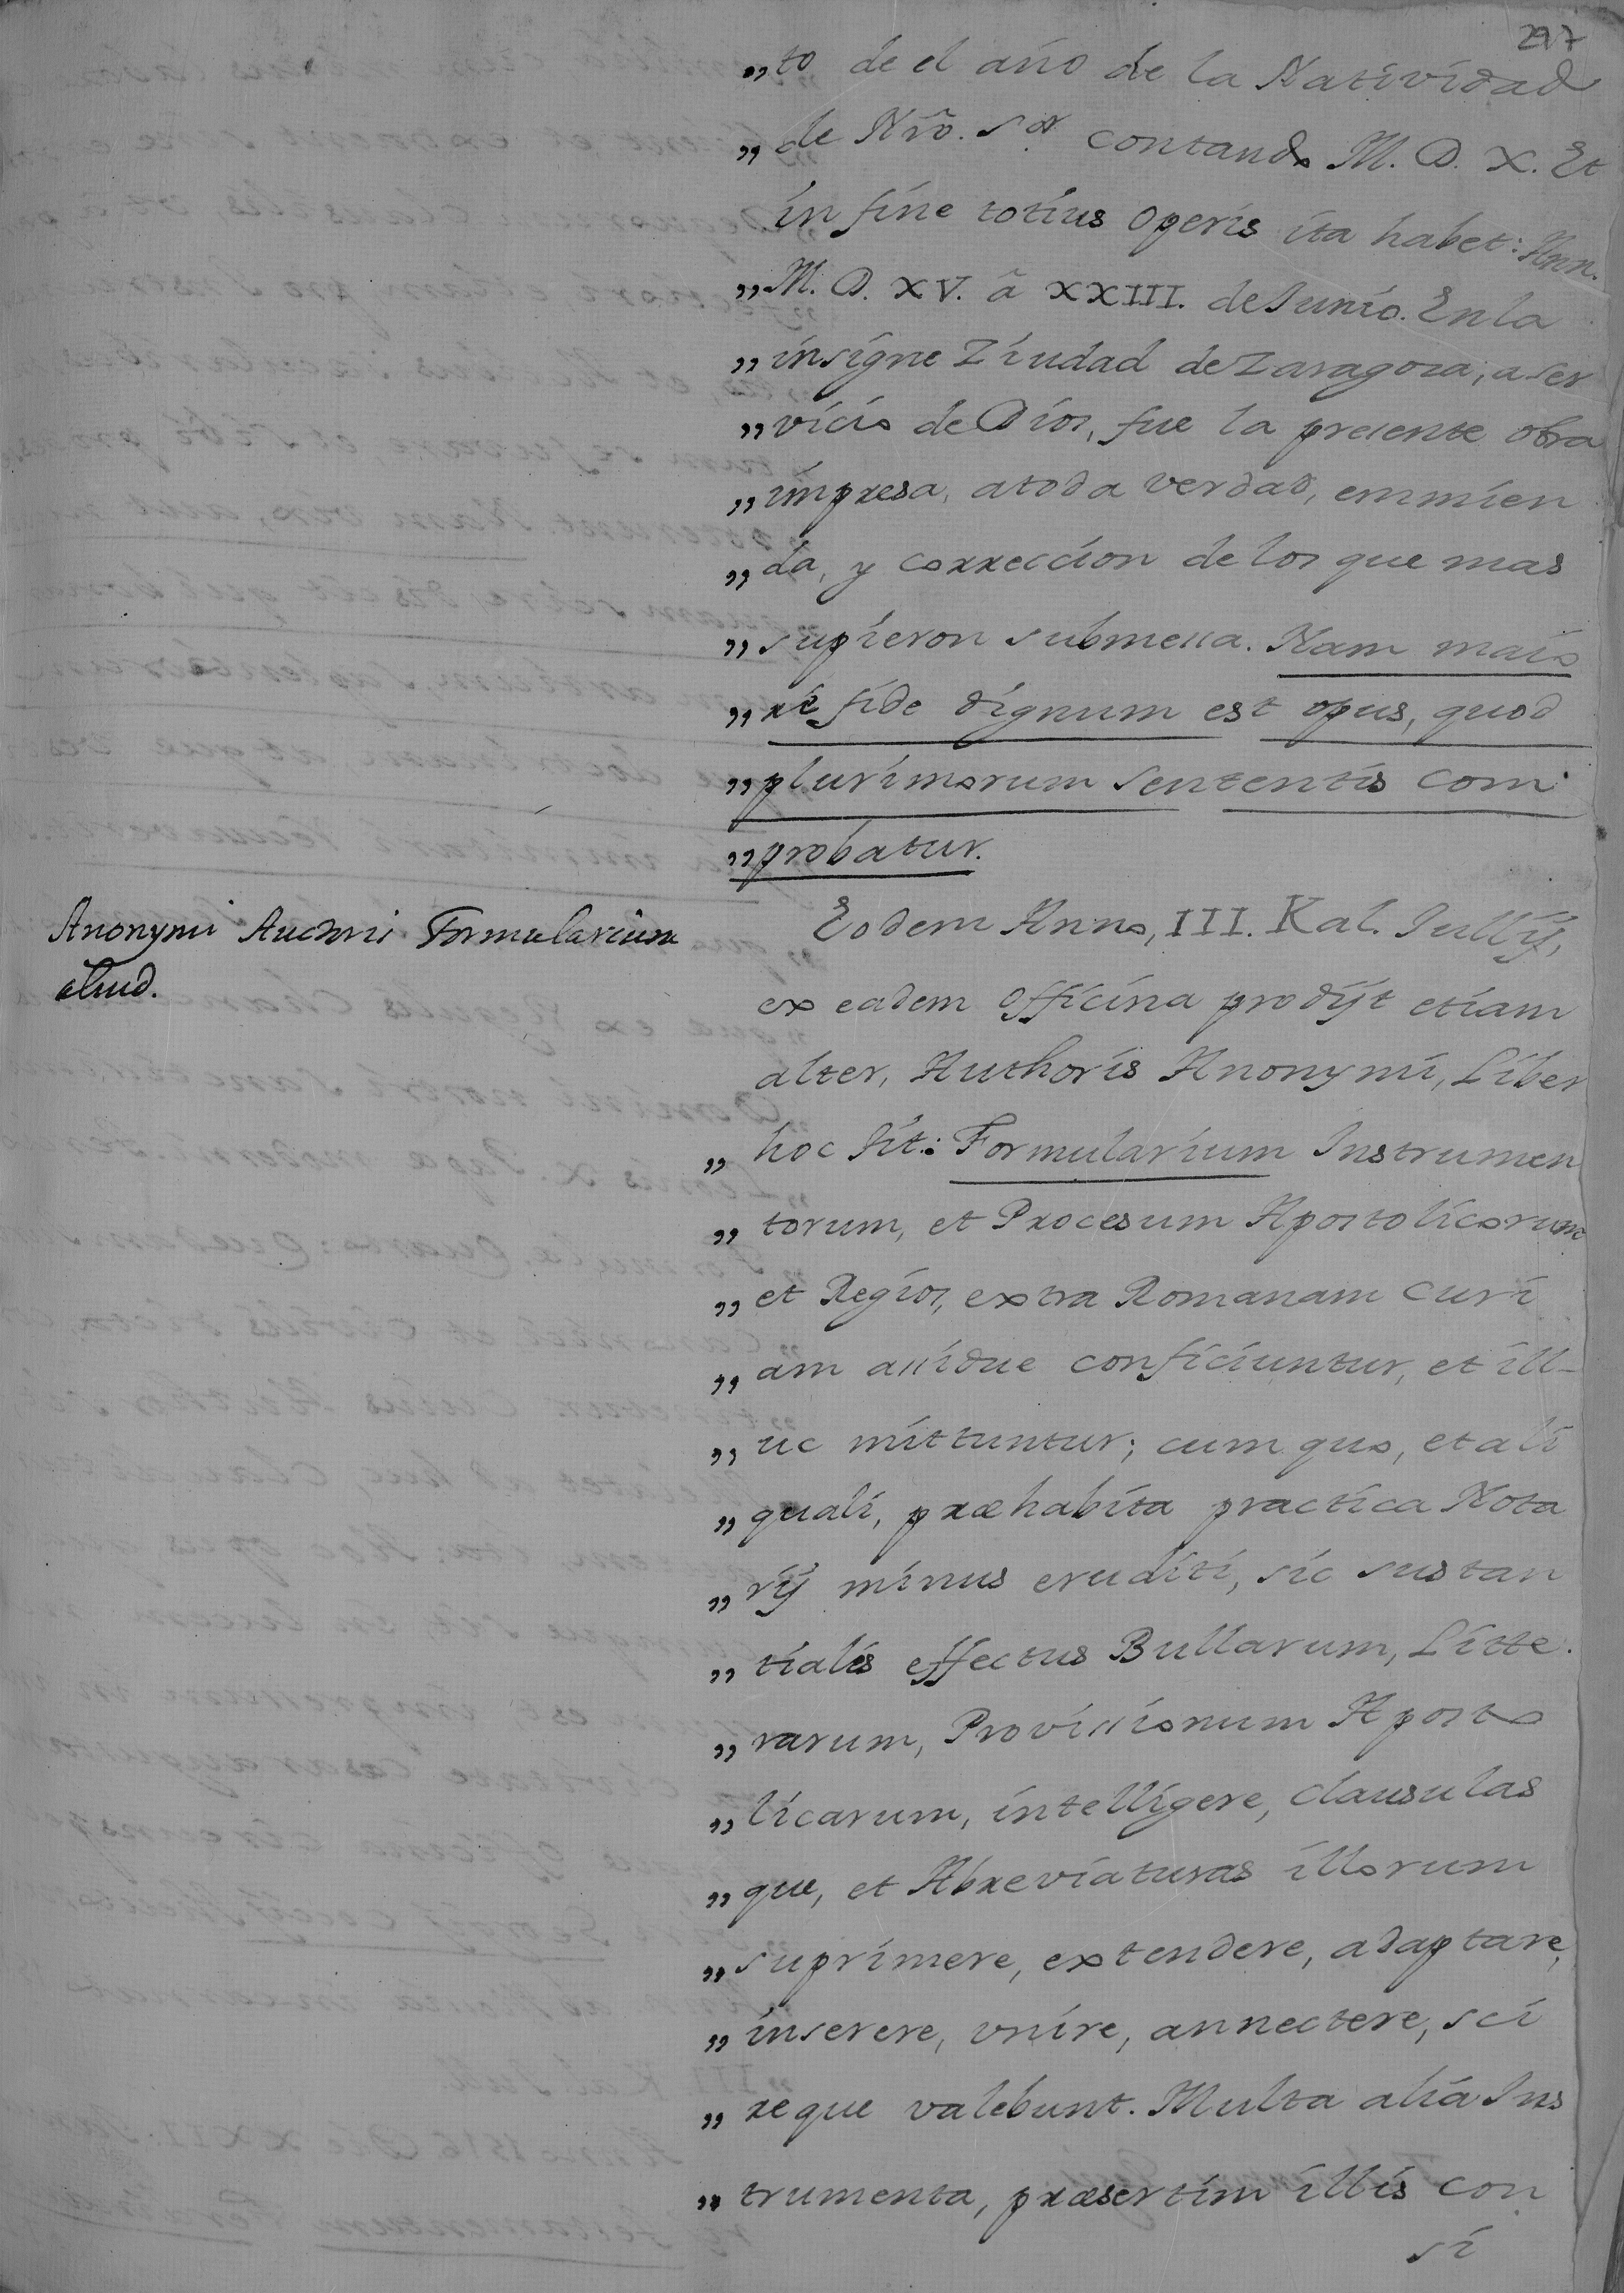 297
„to de el año de la Natividad
„de Nrõ. Sor. contando M. D. X. Et
in fine totius Operis ita habet: Ann.
„M. D. XV. â XXIII. de Junio. En la
„insigne Ziudad de Zaragoza, a ser
„vicio de Dios, fue la presente obra
„impresa, a toda verdad, emmien
„da, y correccion de los que mas
„supieron submessa. Nam maio
„re fide dignum est opus, quod
„plurimorum sententis com
„probatur.
Anonymi Auctoris Formularium
aliud.
Eodem Anno, III. Kal. Jullÿ,
ex eadem Officina prodÿt etiam
alter, Authoris Anonymi, Liber
„hoc tit.: Formularium Instrumen
„torum, et Procesum Apostolicorum
„et Regios, extra Romanam Curi
„am assidue conficiuntur, et ill-
„uc mittuntur; cum quo, et ali
„quali, præhabita practica Nota
„rÿ minus eruditi, sic sustan
„tialis effectus Bullarum, Litte.
„rarum, Provissionum Aposto
„licarum, intelligere, clausulas
„que, et Abreviaturas illorum
„suprimere, extendere, adaptare,
„inserere, vnire, annectere, sci
„reque valebunt. Multa alia Ins
„trumenta, præsertim illis con
si